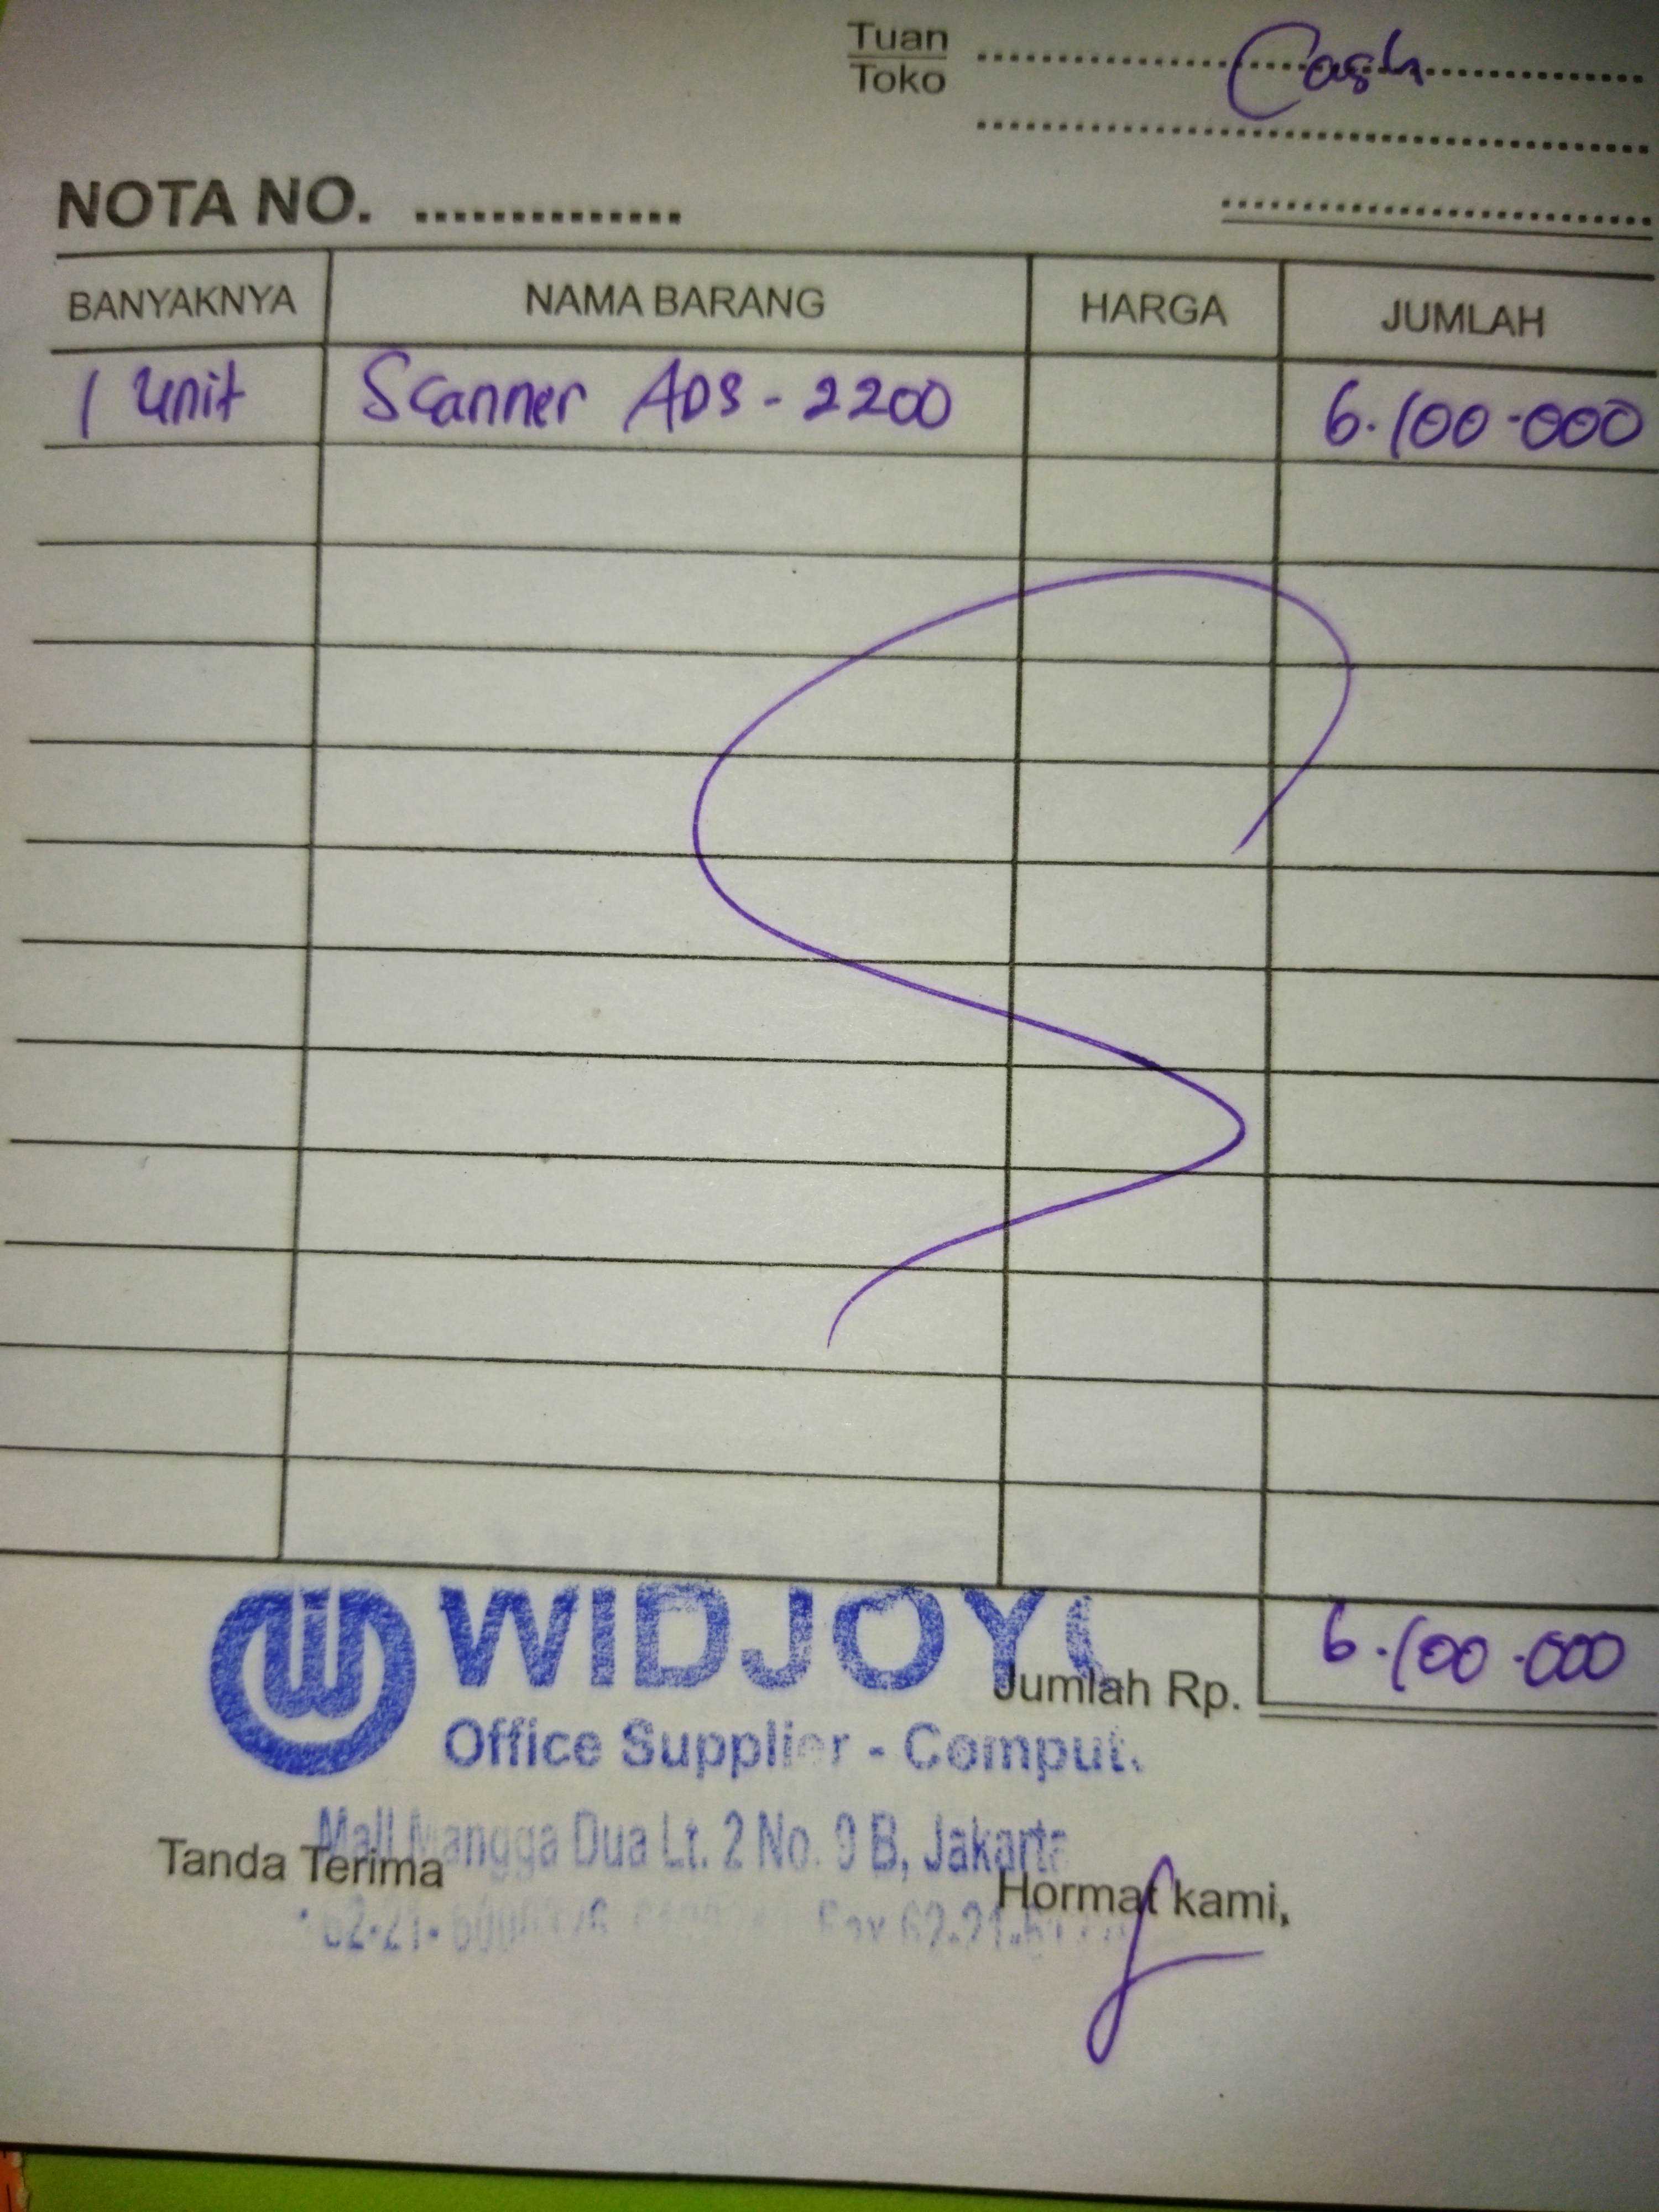 Tuan Cash
Toko
NOTA NO. ..............
BANYAKNYA NAMA BARANG HARGA JUMLAH
1 Unit Scanner ADS - 2200 6.100.000
WIDJOYO
Jumlah Rp. 6.100.000
Office Supplier - Comput
Mall Mangga Dua Lt. 2 No. 9 B, Jakarta
Tanda Terima
Hormat kami,
62-21- Fax 62-21-